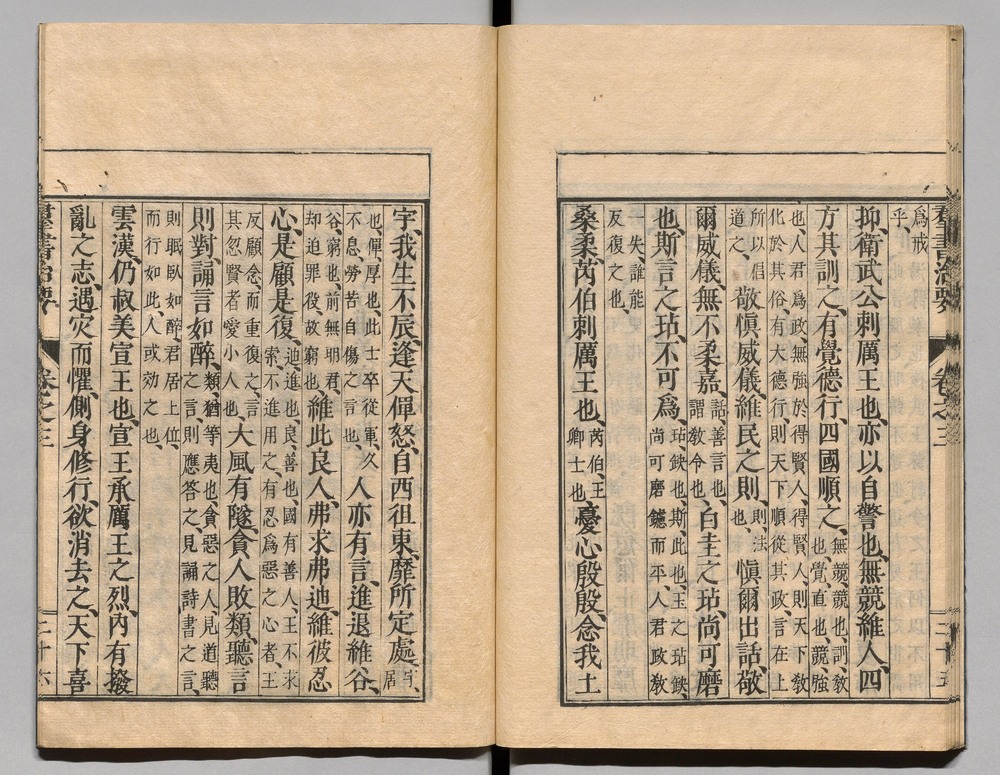 爲戒
乎、
抑、衛武公刺厲王也、亦以自警也、無競維人、四
方其訓之、有覺德行、四國順之、無競、競也、訓、敎也、覺、直也、競、強
也、人君爲政、無強於得賢人、得賢人、則天下敎
化於其俗、有大德行、則天下順從其政、言在上
所以倡
道之、敬愼威儀、維民之則、則、法也、愼爾出話、敬
爾威儀、無不柔嘉、話、善言也、謂敎令也、白圭之玷、尚可磨
也、斯言之玷、不可爲、玷、鈌也、斯、此也、玉之玷鈌、尚可磨鑢而平、人君政敎
一失、誰能
反復之也、
桑柔、芮伯刺厲王也、芮伯、王卿士也、憂心殷殷、念我土
宇、我生不辰、逢天僤怒、自西徂東、靡所定處、宇、居
也、僤、厚也、此士卒從軍、久
不息、勞苦自傷之言也、人亦有言、進退維谷、
谷、窮也、前無明君、
却迫罪役、故窮也、維此良人、弗求弗迪、維彼忍
心、是顧是復、迪、進也、良、善也、國有善人、王不求索、不進用之、有忍爲惡之心者、王
反顧念、而重復之、言
其忽賢者、愛小人也、大風有隧、貪人敗類、聽言
則對、誦言如醉、類、猶等夷也、貪惡之人、見道聽之言、則應答之、見誦詩書之言、
則眠臥如醉、君居上位、
而行如此、人或効之也、
雲漢、仍叔美宣王也、宣王承厲王之烈、內有撥
亂之志、遇灾而懼、側身修行、欲消去之、天下喜
羣書治要
卷之三
二十五
羣書治要
卷之三
二十六